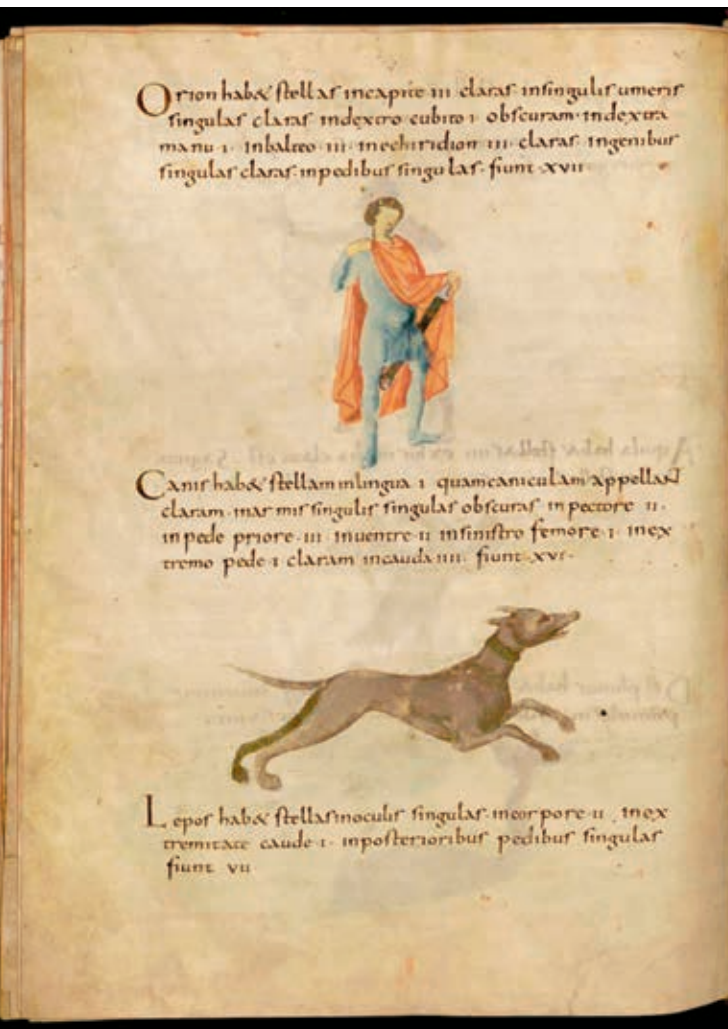 Orion hab& stellas incapite iii claras insingulis umeris
singulas claras indextro cubito i obscuram indextra
manu i inbalteo iii inechiridion iii claras ingenibus
singulas claras inpedibus singulas fiunt xvii
Canis hab& stellam inlingua i quamcaniculam appellant
claram inar mis singulis singulas obscuras inpectore ii
inpede priore iii inuentre ii insinistro femore i inex
tremo pede i claram incauda iiii fiunt xvi
Lepos hab& stellas inoculis singulas incorpore ii inex
tremitate caude i inposterioribus pedibus singulas
fiunt vii